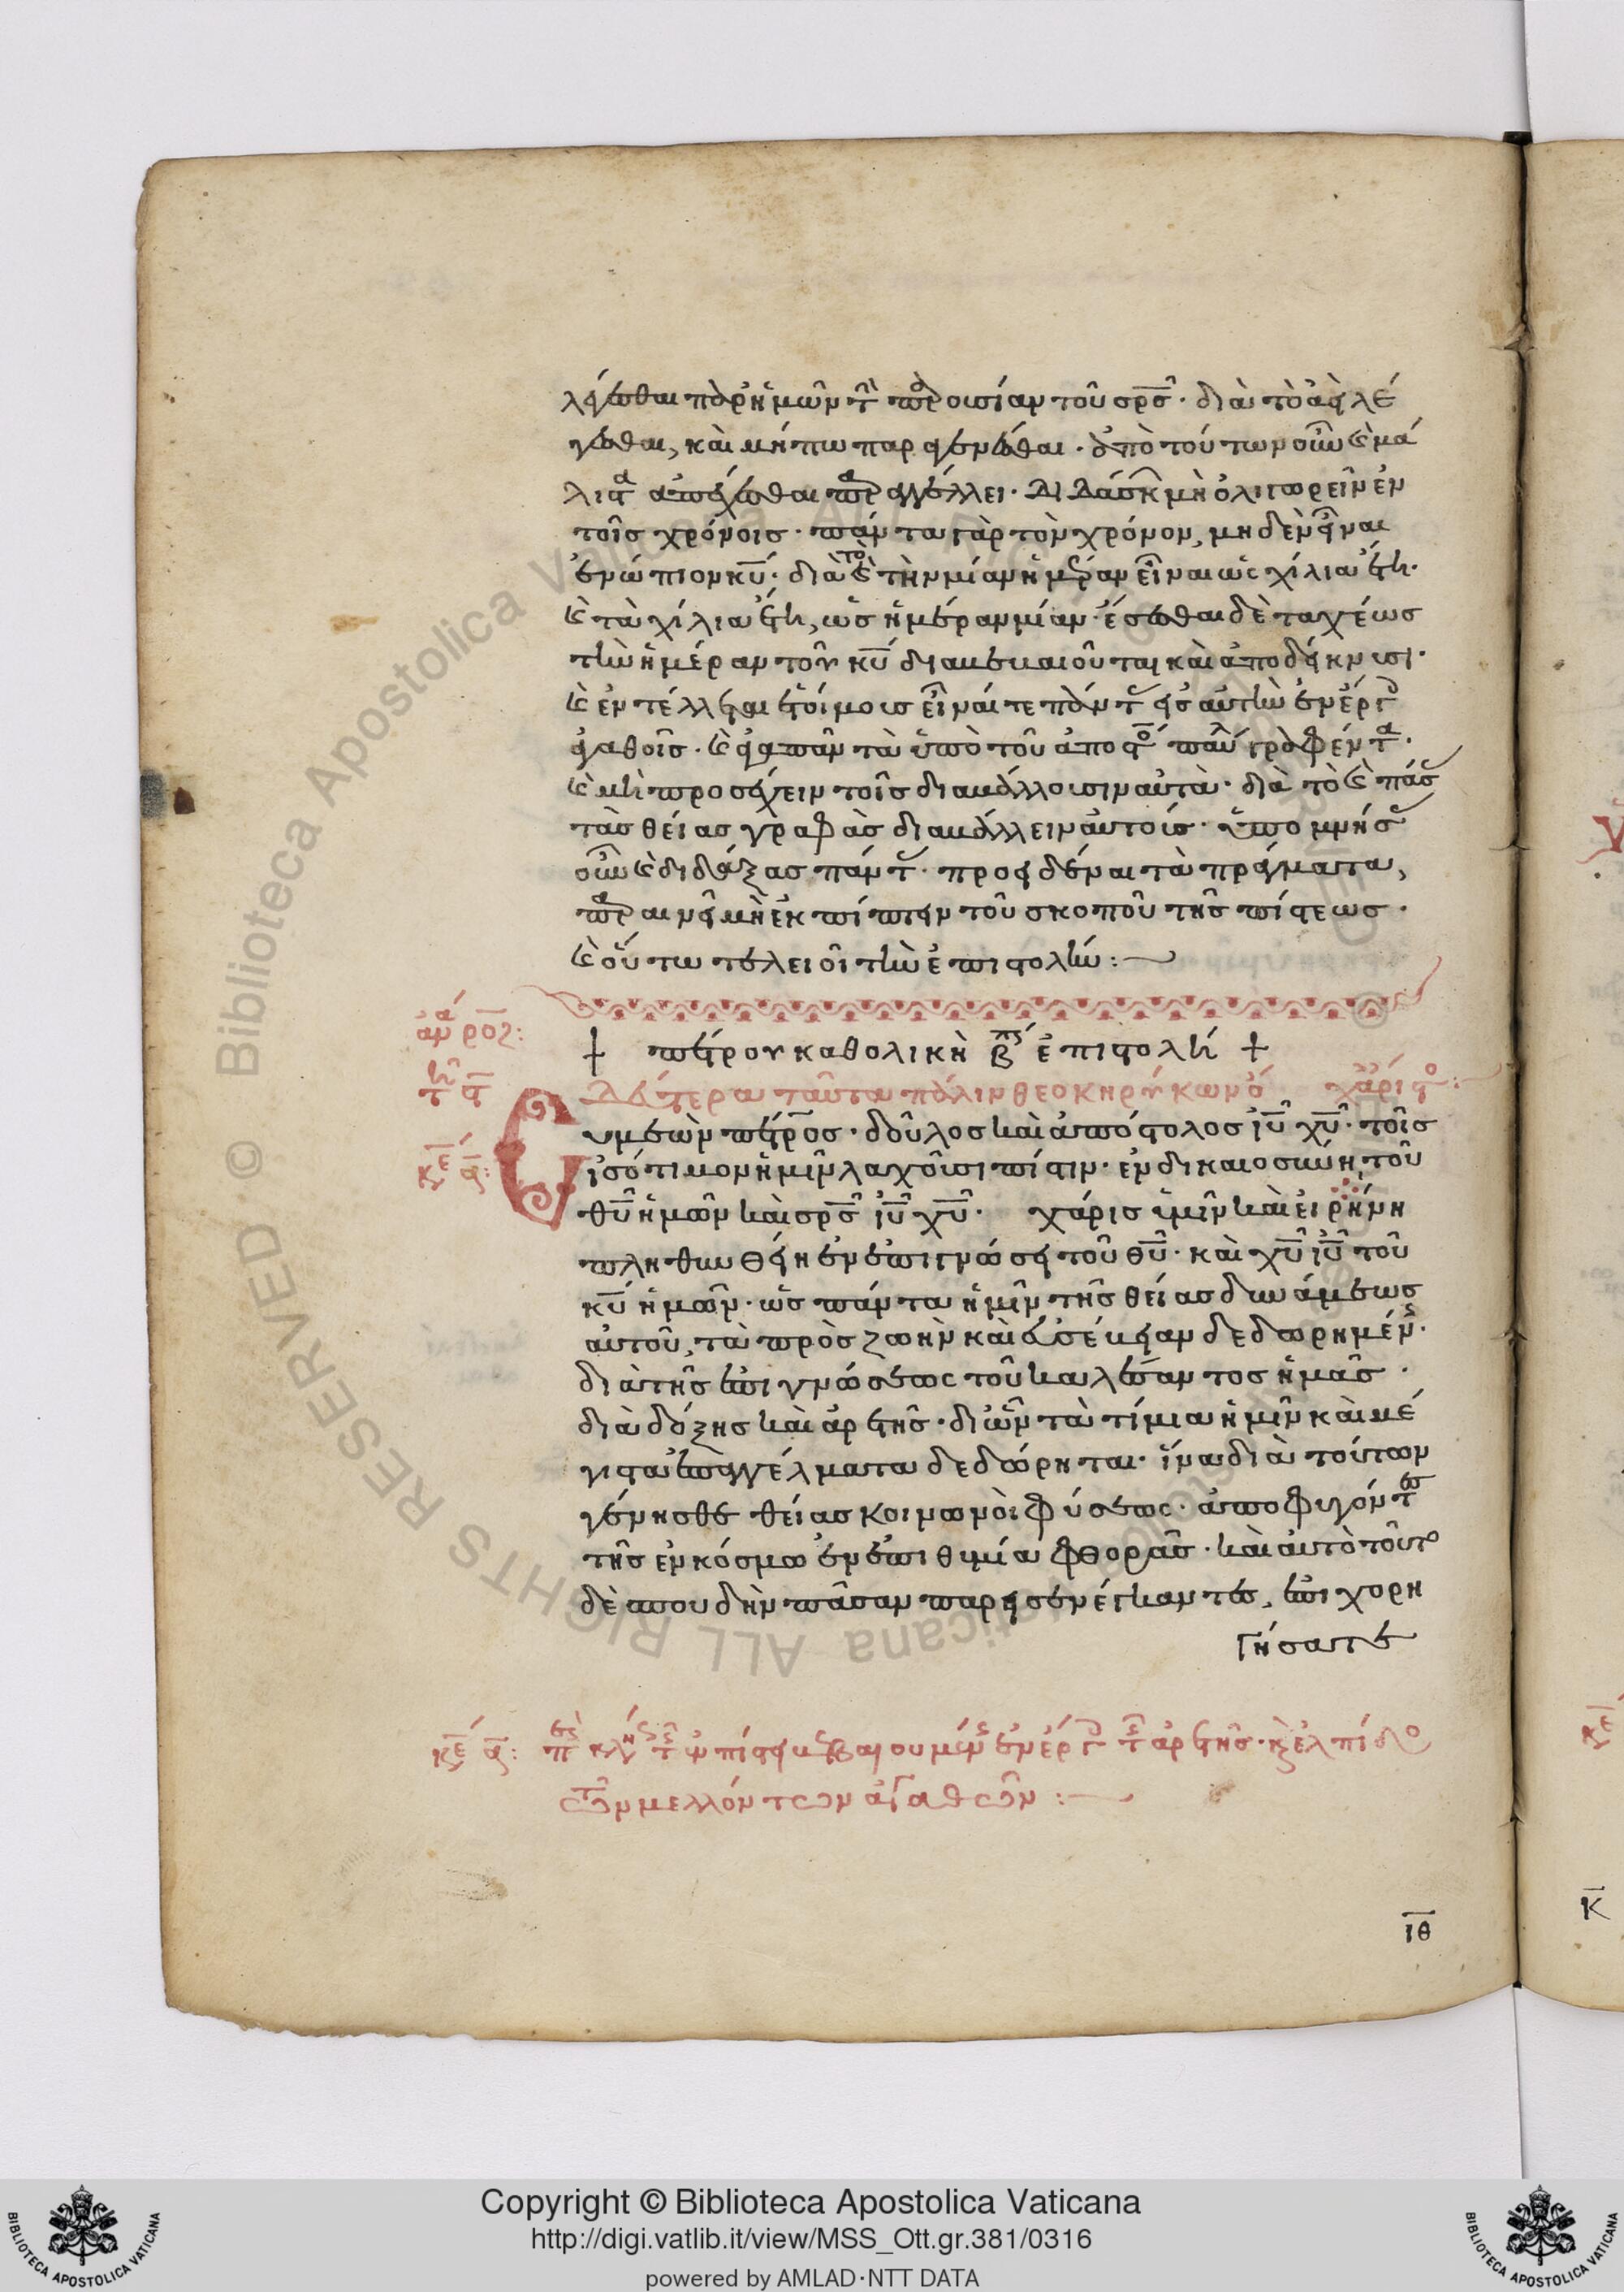 λεῖσθαι παρ' ἡμῶν τὴν παρουσίαν τοῦ σρς· διὰ τὸ ἀεὶ λέ
γεσθαι, καὶ μήπω παραγενέσθαι· ἀπὸ τούτων οὖν καὶ μά
λιστα ἀπέχεσθαι παραγγέλλει· διδάσκει μὴ ὀλιγωρεῖν ἐν
τοῖς χρόνοις· πάντα γὰρ τὸν χρόνον, μηδὲν εἶναι
ἐνώπιον κυ· διὰ τὸ καὶ τὴν μίαν ἡμέραν εἶναι ὡς χίλια ἔτη·
καὶ τὰ χίλια ἔτη, ὡς ἡμέραν μίαν· ἔσεσθαι δὲ ταχέως
τὴν ἡμέραν τοῦ κυ διαβεβαιοῦται καὶ ἀποδείκνυσι·
καὶ ἐντέλλεται ἑτοίμους εἶναί τε πάντας εἰς αὐτὴν ἐν ἔργοις
ἀγαθοῖς· καὶ ἀγαπᾶν τὰ ὑπὸ τοῦ ἀποστόλου παύλου γραφέντα·
καὶ μὴ προσέχειν τοῖς διαβάλλουσιν αὐτά· διὰ τὸ καὶ πάσας
τὰς θείας γραφὰς διαβάλλειν αὐτούς· ὑπομνήσας
οὖν καὶ διδάξας πάντας προειδέναι τὰ πράγματα,
παραινεῖ μὴ ἐκπίπτειν τοῦ σκοποῦ τῆς πίστεως·
καὶ οὕτω τελειοῖ τὴν ἐπιστολήν:
+ πέτρου καθολικὴ β ἐπιστολή +
Δεύτερα ταῦτα πάλιν θεοκηρύκων
Συμεὼν πέτρος· δοῦλος καὶ ἀπόστολος ιυ χυ· τοῖς
ἰσότιμον ἡμῖν λαχοῦσι πίστιν· ἐν δικαιοσύνῃ τοῦ
θυ ἡμῶν καὶ σρς ιυ χυ· χάρις ὑμῖν καὶ εἰρήνη
πληθυνθείη ἐν ἐπιγνώσει τοῦ θυ· καὶ χυ ιυ τοῦ
κυ ἡμῶν· ὡς πάντα ἡμῖν τῆς θείας δυνάμεως
αὐτοῦ, τὰ πρὸς ζωὴν καὶ εὐσέβειαν δεδωρημένης·
διὰ τῆς ἐπιγνώσεως τοῦ καλέσαντος ἡμᾶς·
διὰ δόξης καὶ ἀρετῆς· δι' ὧν τὰ τίμια ἡμῖν καὶ μέ
γιστα ἐπαγγέλματα δεδώρηται· ἵνα διὰ τούτων
γένησθε θείας κοινωνοὶ φύσεως· ἀποφυγόντες
τῆς ἐν κόσμω ἐν ἐπιθυμία φθορᾶς· καὶ αὐτὸ τοῦτο
δὲ σπουδὴν πᾶσαν παρεισενέγκαντες, ἐπιχορη
γήσατε
κε α: περὶ κλήσεως τῆς ἐν πίστει βεβαιουμένης ἐν ἔργοις τῆς ἀρετῆς· καὶ ἐλπίδος
τῶν μελλόντων ἀγαθῶν:
ιθ
κ
Copyright © Biblioteca Apostolica Vaticana
http://digi.vatlib.it/view/MSS_Ott.gr.381/0316
powered by AMLAD·NTT DATA